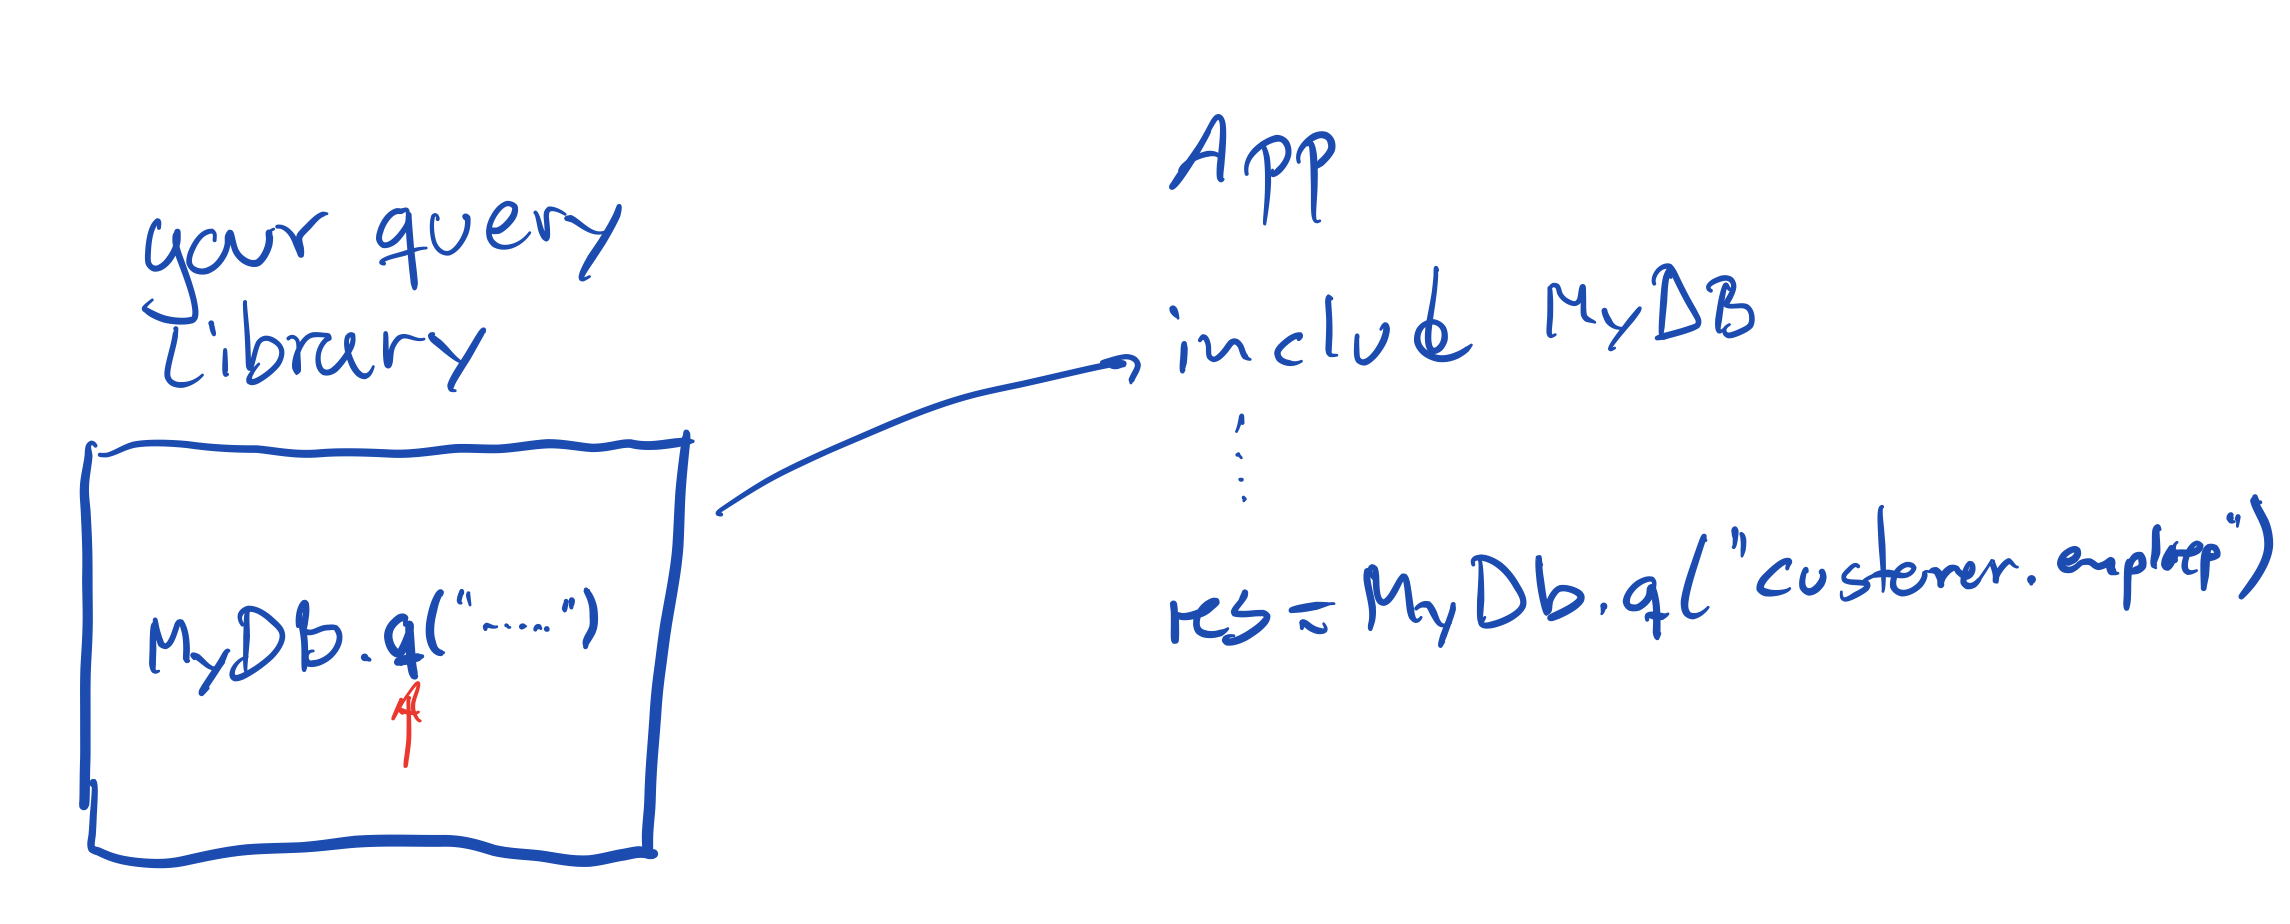 your query
Library
MyDb.q("....")
App
include MyDB
res = MyDb.q("customer.